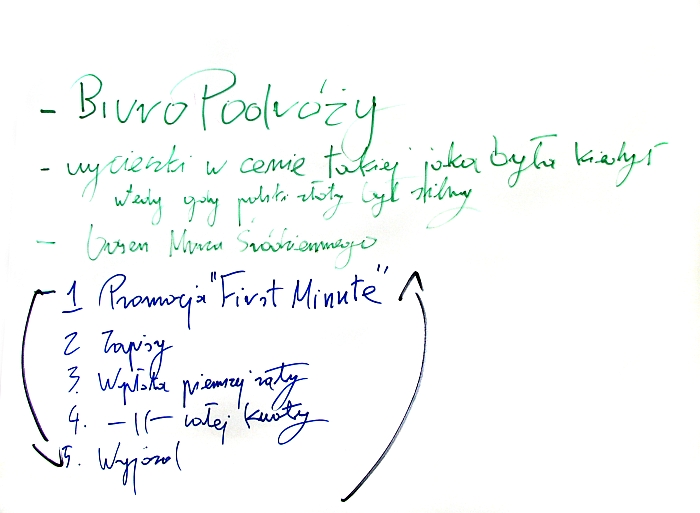 - Biuro Podróży
- wycieczki w cenie takiej jaka była kiedyś
wtedy gdy polski złoty był silny
- Basen Morza Śródziemnego
1 Promocja "First Minute"
2 Zapisy
3. Wpłata pierwszej raty
4. -||- całej kwoty
5. Wyjazd